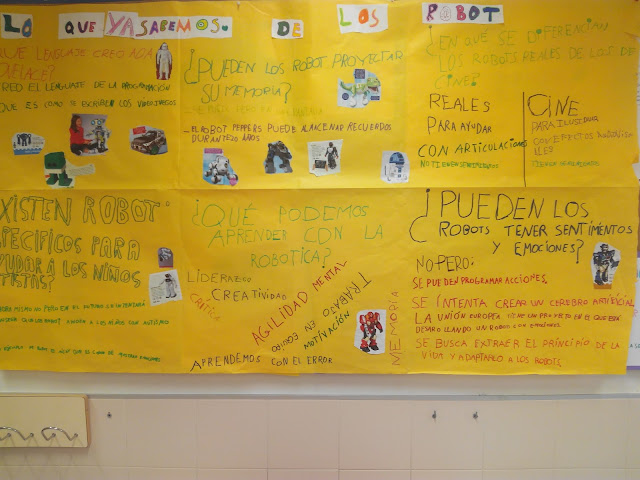 LO QUE YA SABEMOS. DE LOS ROBOT
QUE LENGUAJE CREO ADA
LOVELACE?
CREO EL LENGUAJE DE LA PROGRAMACIÓN
QUE ES COMO SE ESCRIBEN LOS VIDEOJUEGOS
¿PUEDEN LOS ROBOT PROYECTAR
SU MEMORIA?
-EL ROBOT PEPPERS PUEDE ALMACENAR RECUERDOS
DURANTE DOS AÑOS
¿EN QUÉ SE DIFERENCIAN
LOS ROBOTS REALES DE LOS DE
CINE?
REALES
PARA AYUDAR
CON ARTICULACIONES
NO TIENEN SENTIMIENTOS
CINE
PARA ILUSIONAR
CON EFECTOS AUDIOVISUA
LES
TIENEN SENTIMIENTOS
EXISTEN ROBOT
ESPECIFICOS PARA
AYUDAR A LOS NIÑOS
¿QUÉ PODEMOS
APRENDER CON LA
ROBOTICA?
LIDERAZGO
CREATIVIDAD
CRITICA
AGILIDAD MENTAL
TRABAJO
EN EQUIPO
MOTIVACIÓN
MEMORIA
APRENDEMOS CON EL ERROR
¿PUEDEN LOS
ROBOTS TENER SENTIMENTOS
Y EMOCIONES?
NO PERO:
SE PUEDEN PROGRAMAR ACCIONES.
SE INTENTA CREAR UN CEREBRO ARTIFICIAL
LA UNIÓN EUROPEA TIENE UN PROYECTO EN EL QUE ESTÁ
DESARROLLANDO UN ROBOT CON EMOCIONES
SE BUSCA EXTRAER EL PRINCIPIO DE LA
VIDA Y ADAPTARLO A LOS ROBOTS